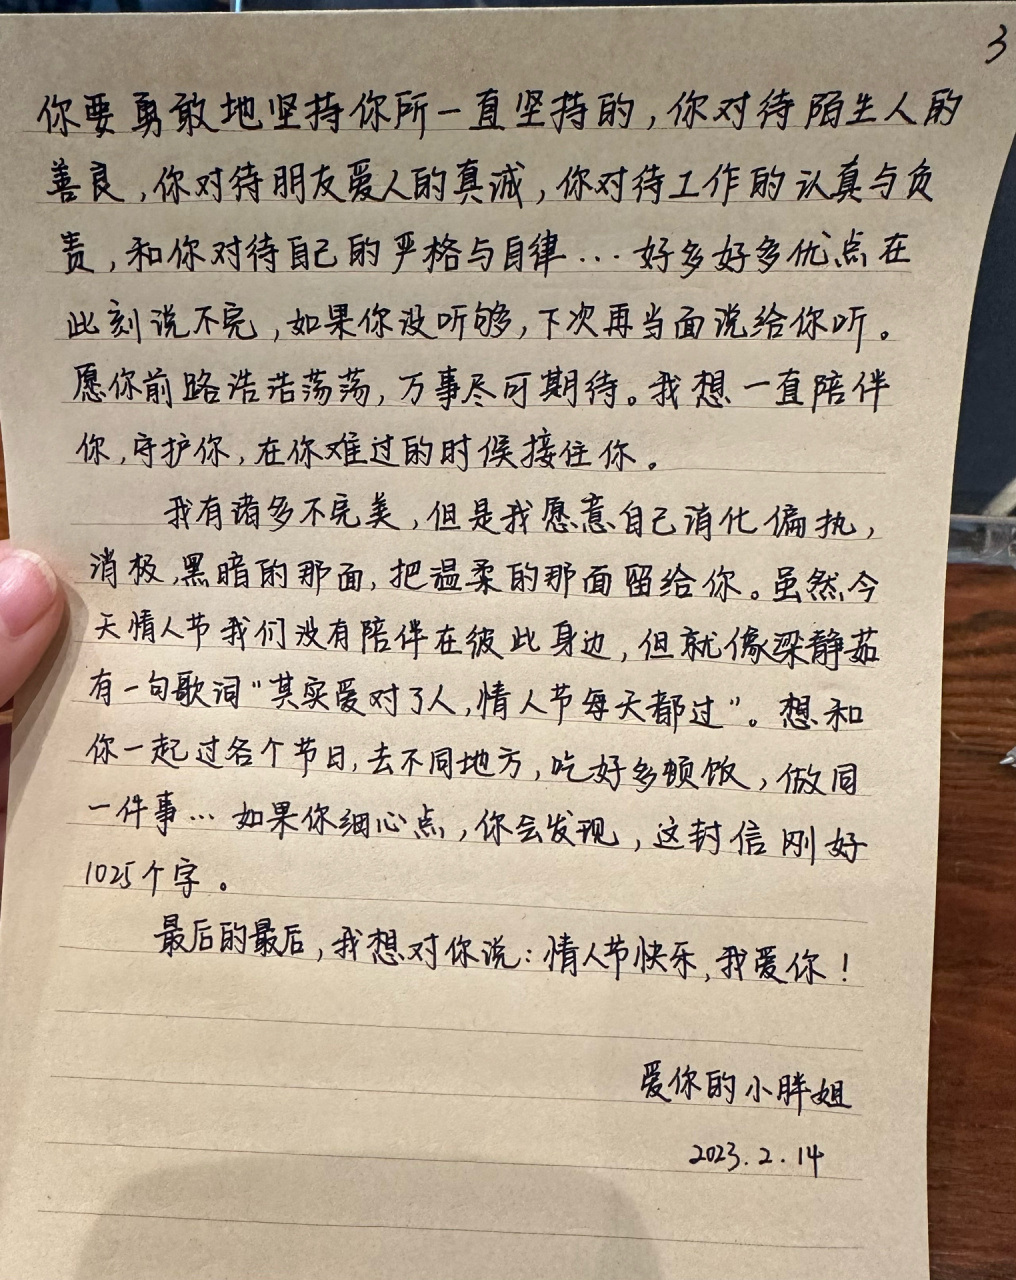 3
你要勇敢地坚持你所一直坚持的，你对待陌生人的
善良，你对待朋友爱人的真诚，你对待工作的认真与负
责，和你对待自己的严格与自律…好多好多优点在
此刻说不完，如果你没听够，下次再当面说给你听。
愿你前路浩浩荡荡，万事尽可期待。我想一直陪伴
你，守护你，在你难过的时候接住你。
我有诸多不完美，但是我愿意自己消化偏执，
消极，黑暗的那面，把温柔的那面留给你。虽然今
天情人节我们没有陪伴在彼此身边，但就像梁静茹
有一句歌词“其实爱对了人，情人节每天都过”。想和
你一起过各个节日，去不同地方，吃好多顿饭，做同
一件事…如果你细心点，你会发现，这封信刚好
1025个字。
最后的最后，我想对你说：情人节快乐，我爱你！
爱你的小胖姐
2023.2.14